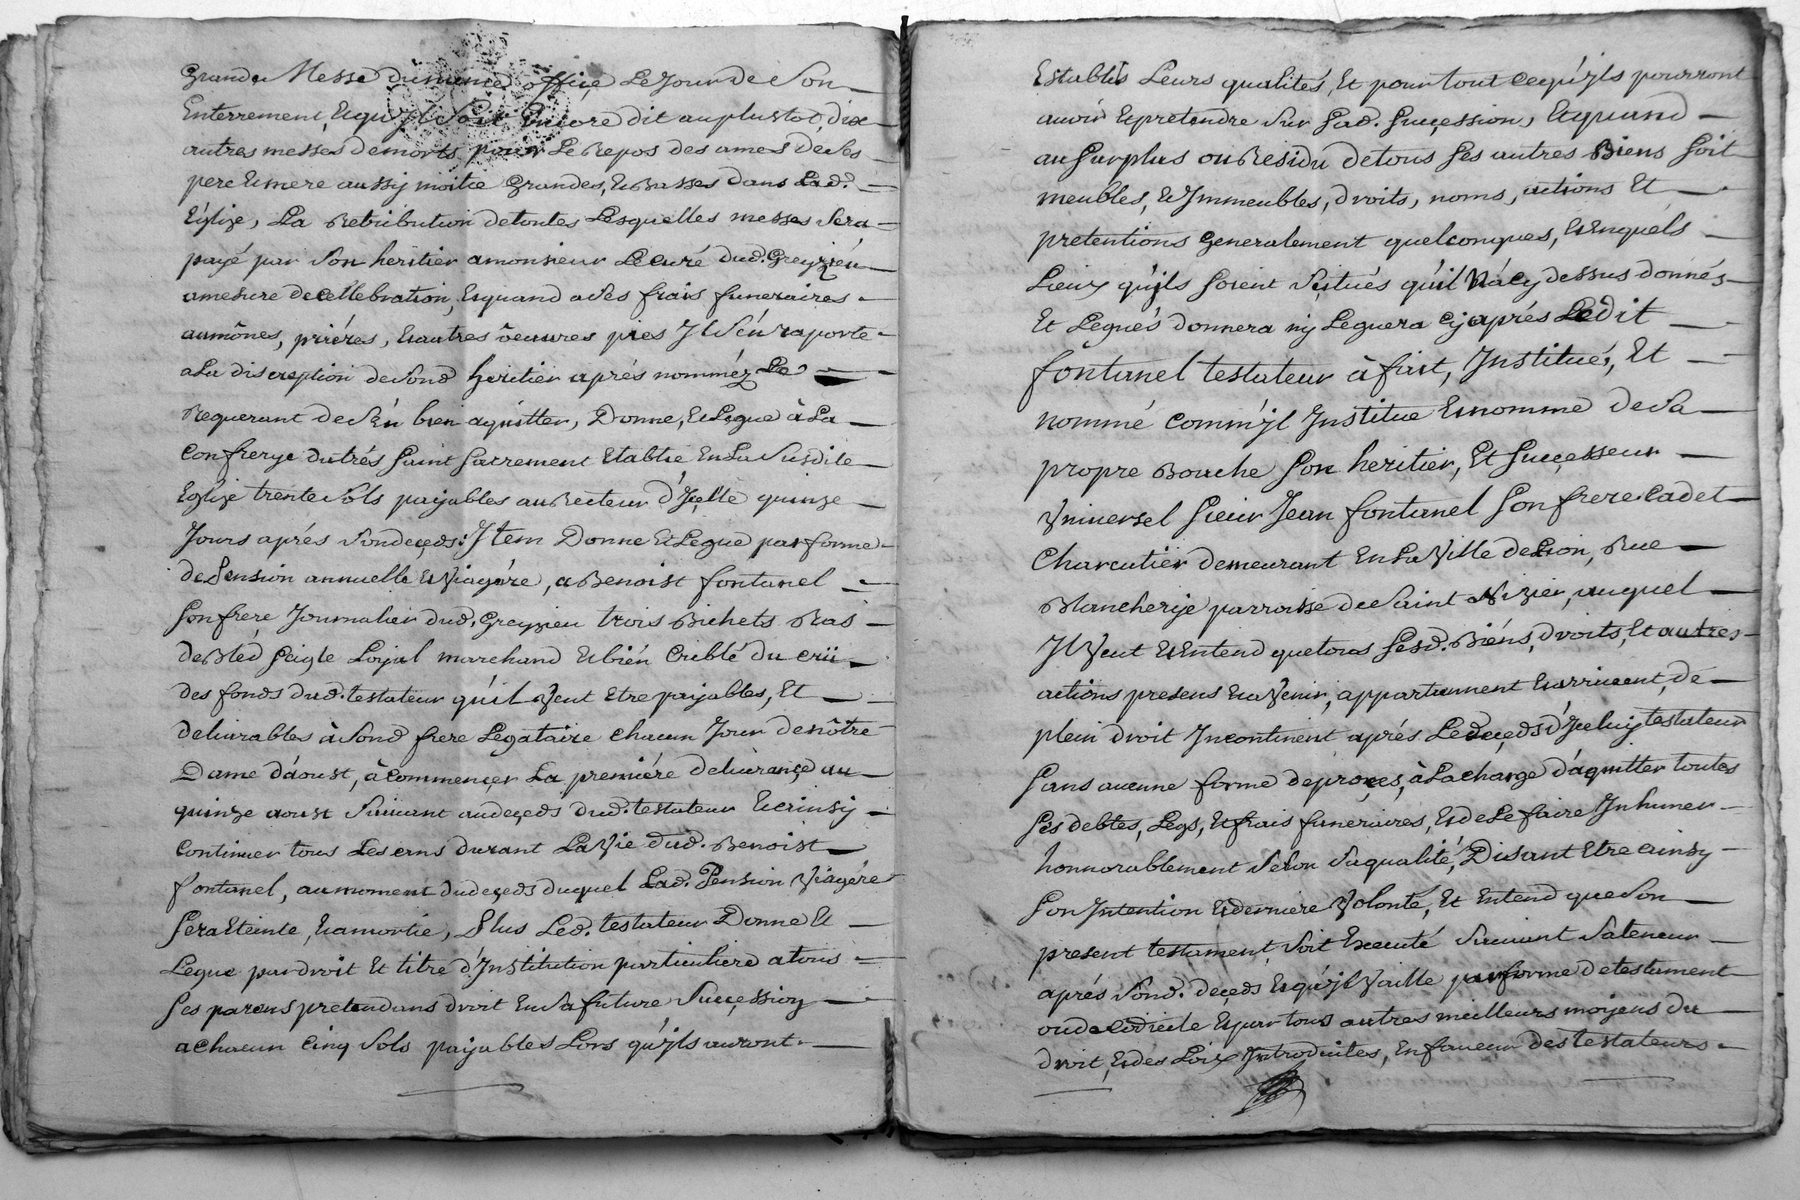 Grande Messe du meme office Le Jour de Son
Enterrement, Et qu'Jl Soit Encore dit au plustot, dix
autres messes de morts pour Le Repos des ames de Ses
pere Et mere aussy moitie Grandes, Et Basses dans Lad.
Eglize, La Retribution de toutes Lesquelles messes Sera
payé par Son heritier a monsieur Le curé dud. Greyzieu
a mesure de cellebration, Et quand a Ses frais funeraires
aumônes, priéres, Et autres oeuvres pies Jl S'en raporte
a La discreption de Sond heritier aprés nomméz Le
Requerant de S'en bien aquitter, Donne, Et Legue à La
Confrerye du trés Saint Sacrement Etablie En La Susdite
Eglize trente Sols payables au Recteur d'Jçelle quinze
Jours aprés Son deçeds: Jtem Donne Et Legue par forme
de Pension annuelle Et Viagére, a Benoist fontanel
Son frere Journalier dud. Greyzieu trois Bichets Ras
de Bled Seigle Loyal marchand Et bién Criblé du crü
des fonds dud. testateur qu'il Veut Etre payables, Et
delivrables à Sond frere Legataire chacun Jour de nôtre
Dame d'aoust, à Commençer La premiére delivrançe au
quinze aoust Suivant au deçeds dud. testateur Et ainsy
Continuer tous Les ans durant La Vie dud. Benoist
fontanel, au moment du deçeds duquel Lad. Pension Viagére
Sera Eteinte, Et amortie, Plus Led. testateur Donne Et
Legue par droit Et titre d'Jnstitution particuliere a tous
Ses parens pretendans droit En Sa future Sucçession
a Chacun Cinq Sols payables Lors qu'yls auront
Establis Leurs qualités, Et pour tout ce qu'yls pourront
avoir Et pretendre Sur Sad. Sucçession, Et quand
au Surplus ou Residu de tous Ses autres Biens Soit
meubles, Et Jmmeubles, droits, noms, actions Et
pretentions Generalement quelconques, Et En quels
Lieux qu'yls Soient Sçitués qu'il N'a Cy dessus donnés
Et Legués donnera ny Leguera Cy aprés Ledit
fontanel testateur à fait, Jnstitué, Et
nommé Comm'yl Jnstitue Et nomme de Sa
propre Bouche Son heritier, Et Sucçesseur
Vniversel Sieur Jean fontanel Son frere Cadet
Charcutier demeurant En La Ville de Lion, Rue
Blancherye parroisse de Saint Nizier, auquel
Jl Veut Et Entend que tous Sesd. Biéns, droits, Et autres
actions presens Et a Venir, appartiennent Et arrivent, de
plein droit Jncontinent aprés Le deçeds d'Jceluy testateur
Sans aucune forme de proçes, à La charge d'aquitter toutes
Ses debtes, Legs, Et frais funeraires, Et de Le faire Jnhumer
honnorablement Selon Sa qualité, Disant Etre ainsy
Son Jntention Et derniere Volonté, Et Entend que Son
present testament, Soit Executé Suivant Sa teneur
aprés Sond. deçeds Et qu'yl Vaille par forme de testament
ou de Codicile Et par tous autres meilleurs moyens du
droit, Et des Loix Jntroduites, En faveur des testateurs